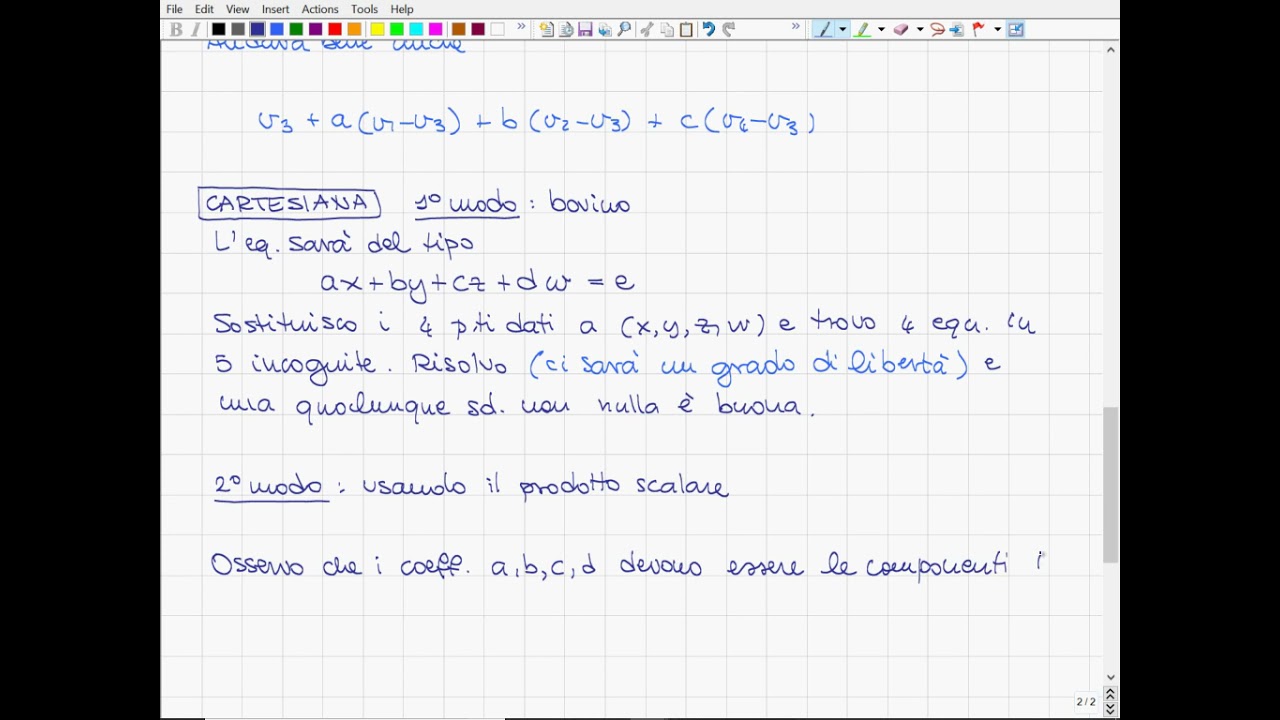 File Edit View Insert Actions Tools Help
B I
Andava bene anche
v3 + a(v1-v3) + b(v2-v3) + c(v4-v3)
CARTESIANA 1° modo : bovino
L'eq. sarà del tipo
ax+by+cz+dw = e
Sostituisco i 4 p.ti dati a (x,y,z,w) e trovo 4 equ. in
5 incognite. Risolvo (ci sarà un grado di libertà) e
una qualunque sol. non nulla è buona.
2° modo : usando il prodotto scalare
Osservo che i coeff. a,b,c,d devono essere le componenti i
2/2